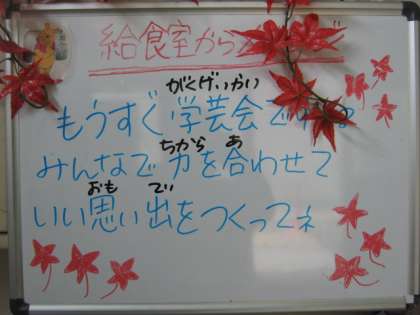 給食室から
がくげいかい
もうすぐ学芸会ですね
ちから あ
みんなで力を合わせて
おも で
いい思い出をつくってネ